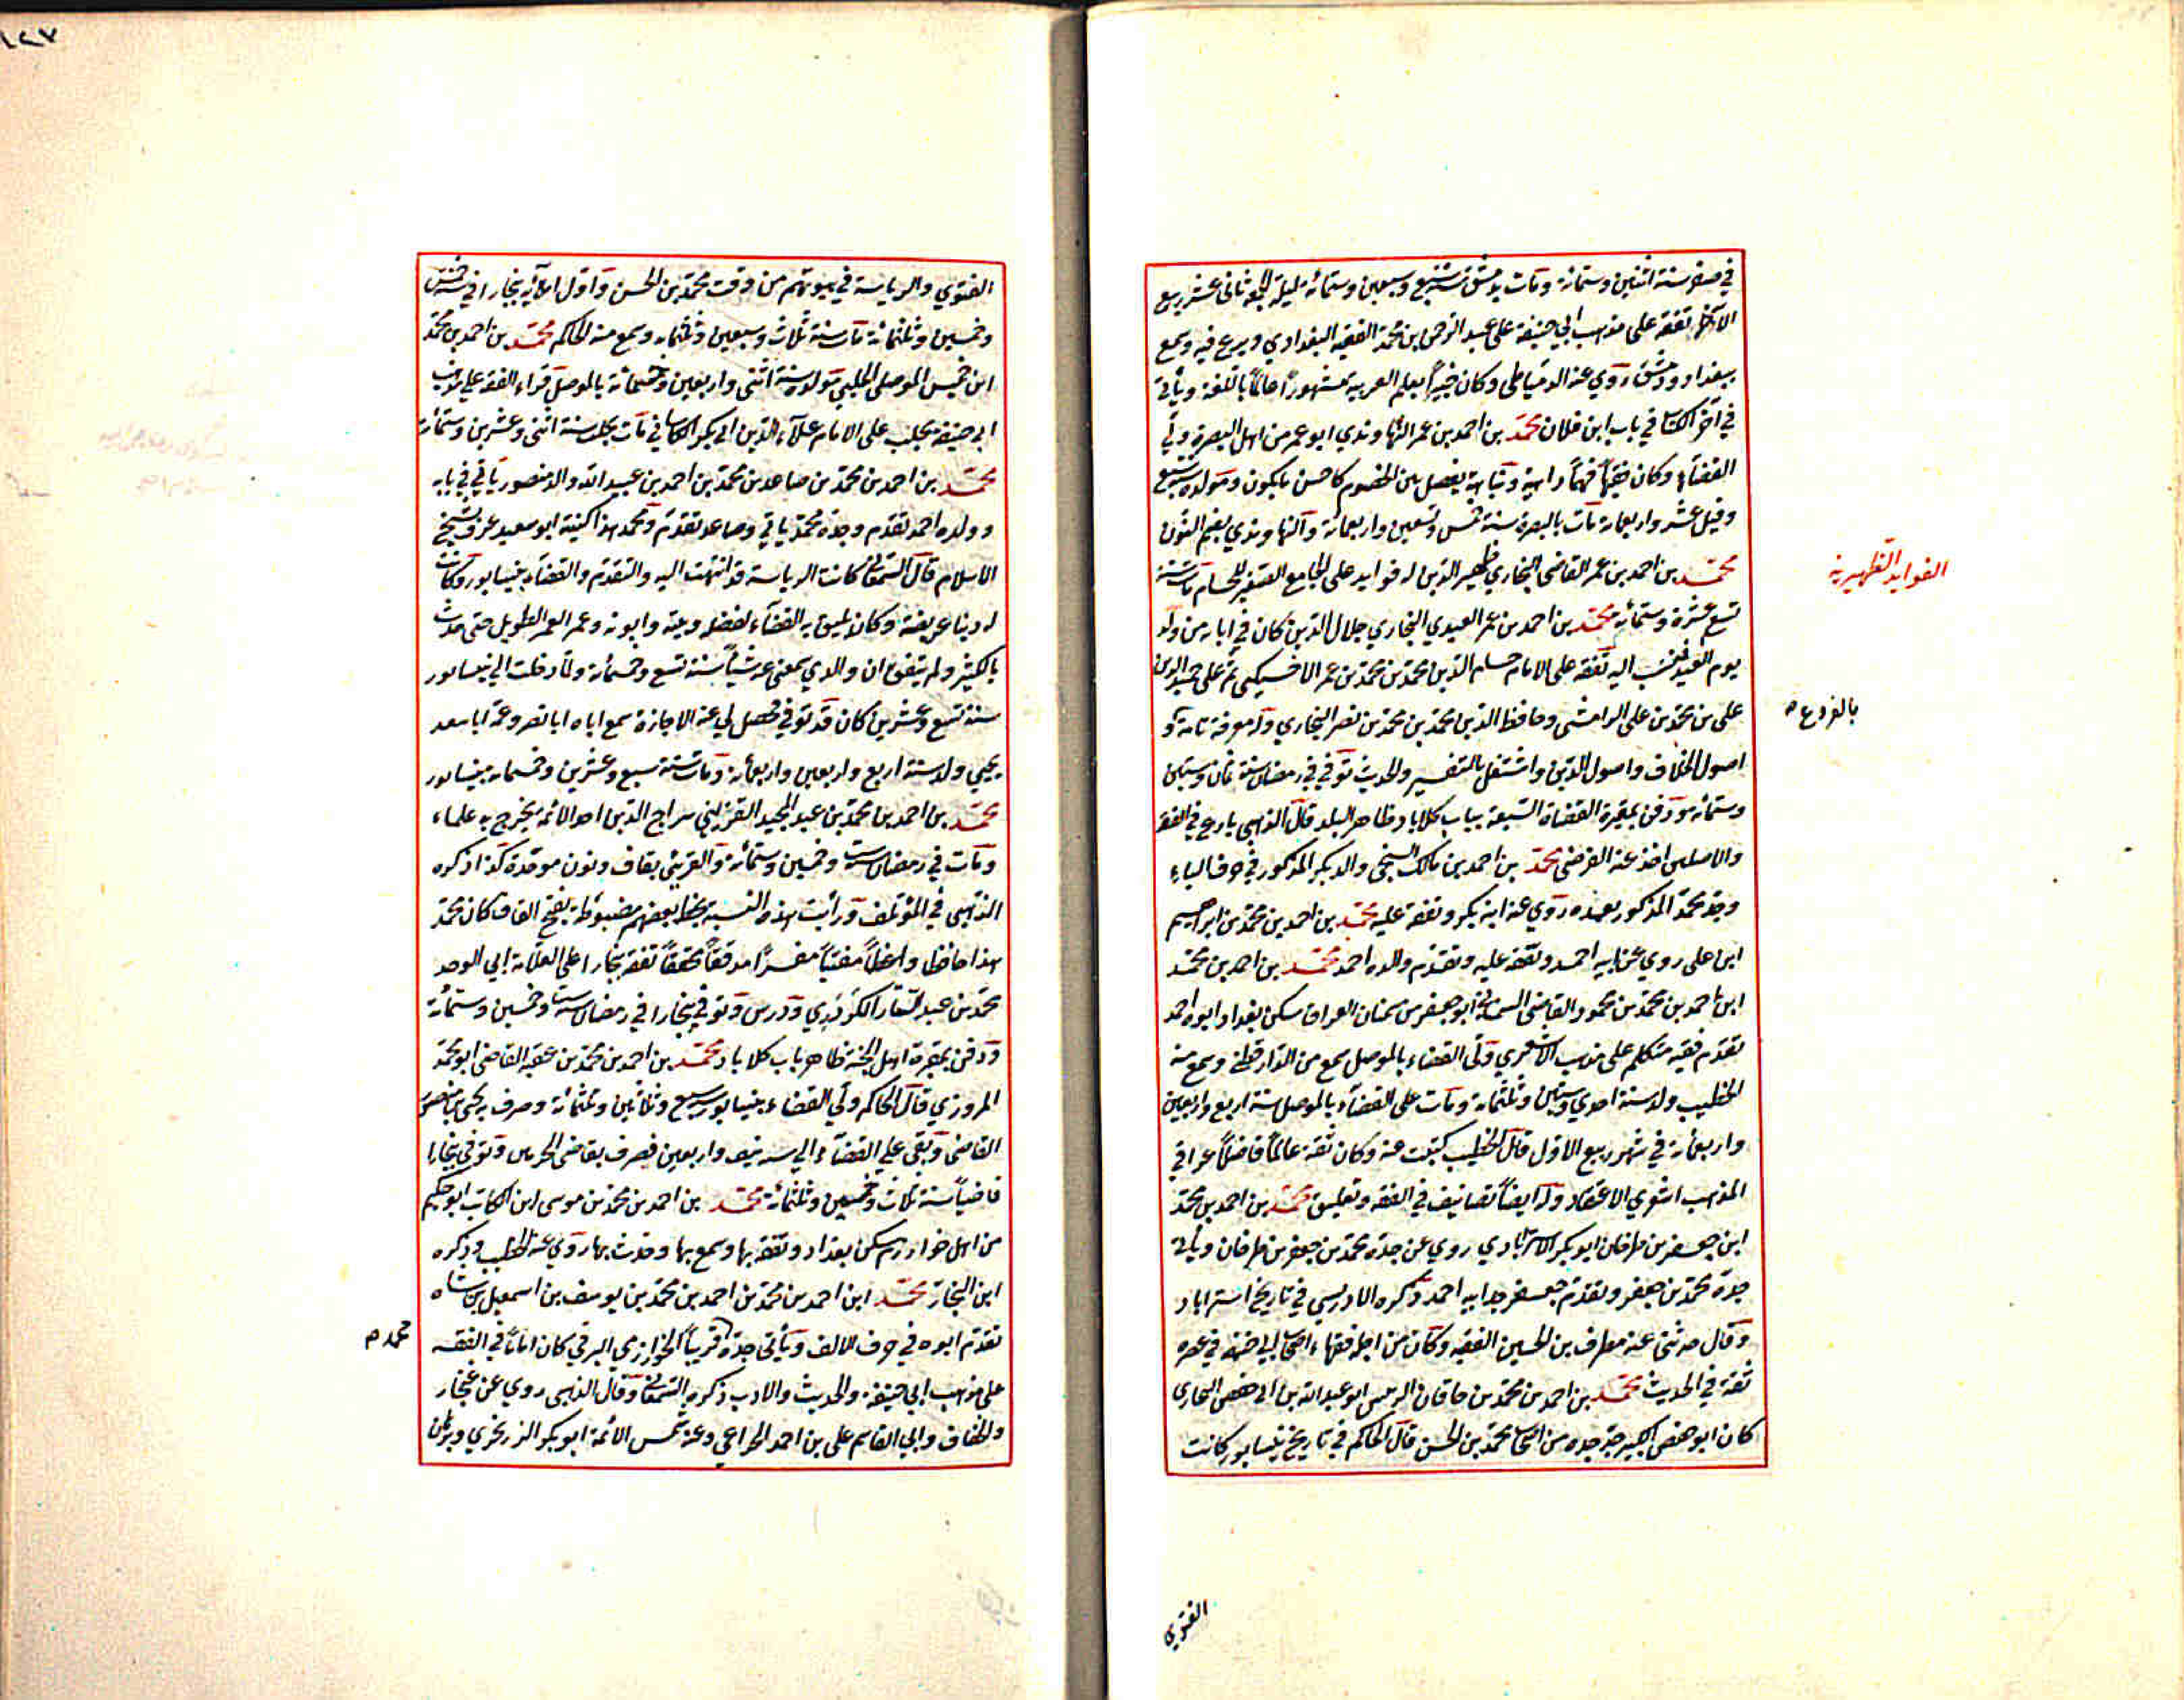 في صفر سنة اثنين وستمائة ومات بدمشق سنة سبع وسبعين وستمائة ليلة الجمعة ثاني عشر ربيع
الآخر تفقه على مذهب ابي حنيفة على عبد الرحمن بن محمد الفقيه البغدادي وبرع فيه وسمع
ببغداد ودمشق روي عنه الدمياطي وكان خبيراً بعلم العربية مشهوراً عالماً باللغة ويأتي
في آخر الكتاب في باب ابن فلان محمد بن احمد بن عمر النهاوندي ابو عمر من اهل البصرة ولي
القضاء وكان فقيهاً فهماً يفصل بين الخصوم كاحسن ما يكون ومولده سنة سبع
وقيل عشر واربعمائة مات بالبصرة سنة خمس وتسعين واربعمائة والنهاوندي بضم النون
محمد بن احمد بن عمر القاضي البخاري ظهير الدين له فوايد على الجامع الصغير للحسام مات سنة
الفوايد الظهيرية
تسع عشرة وستمائة محمد بن احمد بن عمر العيدي البخاري جلال الدين كان في آبائه من ولد
يوم العيد فنسب اليه تفقه على الامام حسام الدين محمد بن محمد بن عمر الاخسيكثي ثم على حميد الدين
علي بن محمد بن علي الرامشي وحافظ الدين محمد بن محمد بن نصر البخاري وله معرفة تامة و
بالفروع
اصول الخلاف واصول الدين واشتغل بالتفسير والحديث توفي في رمضان سنة ثمان وستين
وستمائة ودفن بمقبرة القضاة السبعة بباب كلاباد ظاهر البلد قال الذهبي بارع في الفقه
والاصلين اخذ عنه الفرضي محمد بن احمد بن مالك والد بكر المذكور في حرف الباء
وجد محمد المذكور بعده روي عنه ابنه بكر وتفقه عليه محمد بن احمد بن محمد بن ابراهيم
ابن علي روي عن ابيه احمد وتفقه عليه وتقدم والده احمد محمد بن احمد بن محمد
ابن احمد بن محمد بن محمود القاضي السمناني ابو جعفر من سمنان العراق سكن بغداد ابوه احمد
تقدم فقيه متكلم على مذهب الاشعري ولي القضاء بالموصل سمع من الدارقطني وسمع منه
الخطيب ولد سنة احدي وستين وثلثمائة ومات على القضاء بالموصل سنة اربع واربعين
واربعمائة في شهر ربيع الاول قال الخطيب كتبت عنه وكان ثقة عالماً فاضلاً عراقي
المذهب اشعري الاعتقاد وله ايضاً تصانيف في الفقه وتعليق محمد بن احمد بن محمد
ابن جعفر بن طرخان ابو بكر الاستراباذي روي عن جده محمد بن جعفر بن طرخان ويأتي
جده محمد بن جعفر وتقدم جعفر جد ابيه احمد ذكره الادريسي في تاريخ استراباد
وقال حدثني عنه مطرف بن الحسين الفقيه وكان من اجل فقهاء اصحاب ابي حنيفة في عصره
ثقة في الحديث محمد بن احمد بن محمد بن خاقان الرئيس ابو عبد الله بن ابي حفص البخاري
كان ابو حفص الكبير جد جده من اصحاب محمد بن الحسن قال الحاكم في تاريخ نيسابور كانت
الفتوي
الفتوي والرياسة في بيوتهم من وقت محمد بن الحسن واول املائه ببخارا في سنة خمس
وخمسين وثلثمائة مات سنة ثلاث وسبعين وثلثمائة وسمع منه الحاكم محمد بن احمد بن محمد
ابن خميس الموصلي الحلبي مولده سنة اثنتي واربعين وخمسمائة بالموصل قراء الفقه على مذهب
ابي حنيفة بحلب على الامام علاء الدين ابي بكر الكاساني مات بحلب سنة اثنتي وعشرين وستمائة
محمد بن احمد بن محمد بن صاعد بن محمد بن احمد بن عبيد الله والد منصور يأتي في بابه
وولده احمد تقدم وجده محمد يأتي وصاعد تقدم ومحمد هذا كنيته ابو سعيد عرف بشيخ
الاسلام قال السمعاني كانت الرياسة قد انتهت اليه والتقدم والقضاء بنيسابور وكانت
له دنيا عريضة وكان يليق به القضاء لفضله وبيته وابوته وعمر العمر الطويل حتى حدث
بالكثير ولم يتفق ان والدي سمعني عنه شيأ سنة تسع وخمسمائة ولما دخلت الي نيسابور
سنة تسع وعشرين كان قد توفي فحصل لي عنه الاجازة سمع اباه ابا نصر وعمه ابا سعد
يحيي ولد سنة اربع واربعين واربعمائة ومات سنة سبع وعشرين وخمسمائة بنيسابور
محمد بن احمد بن محمد بن عبد المجيد القزبني سراج الدين احد الائمة تخرج به علماء
ومات في رمضان سنة ست وخمسين وستمائة والقربني بقاف ونون موحدة كذا ذكره
الذهبي في المؤتلف ورأيت هذه النسبة بخط بعضهم مضبوطة بفتح القاف كان محمد
هذا حافظا واعظاً مفتياً مفسراً مدققاً محققاً تفقه ببخارا على العلامة ابي الوحد
محمد بن عبد الستار الكردري ودرس وتوفي ببخارا في رمضان سنة ست وخمسين وستمائة
ودفن بمقبرة اهل الجنة ظاهر باب كلاباد محمد بن احمد بن محمد بن عقبة القاضي ابو محمد
المروزي قال الحاكم ولي القضاء بنيسابور سنة سبع وثلاثين وثلثمائة وصرف بيحيي بن منصور
القاضي وبقي على القضاء الي سنة نيف واربعين فصرف بقاضي الحرمين وتوفي ببخارا
قاضياً سنة ثلاث وخمسين وثلثمائة محمد بن احمد بن محمد بن موسى ابن الكاتب ابو حكيم
من اهل خوارزم سكن بغداد وتفقه بها وسمع بها وحدث بها روي عنه الخطيب وذكره
ابن النجار محمد ابن احمد بن محمد بن احمد بن محمد بن يوسف بن اسمعيل بن شاه
تقدم ابوه في حرف الالف ويأتي جده قريباً الخوارزمي البرقي كان اماماً في الفقه
محمد
على مذهب ابي حنيفة والحديث والادب ذكره السمعاني وقال الذهبي روي عن غنجار
والخفاف وابي القاسم علي بن احمد الخزاعي وعنه شمس الائمة ابو بكر الزرنجري